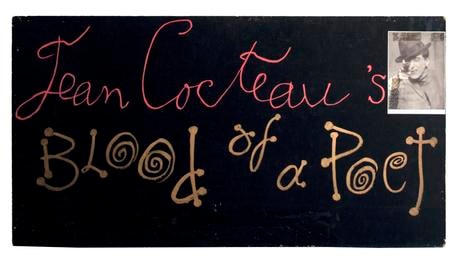 Jean Cocteau's
BLOOd of a PoeT